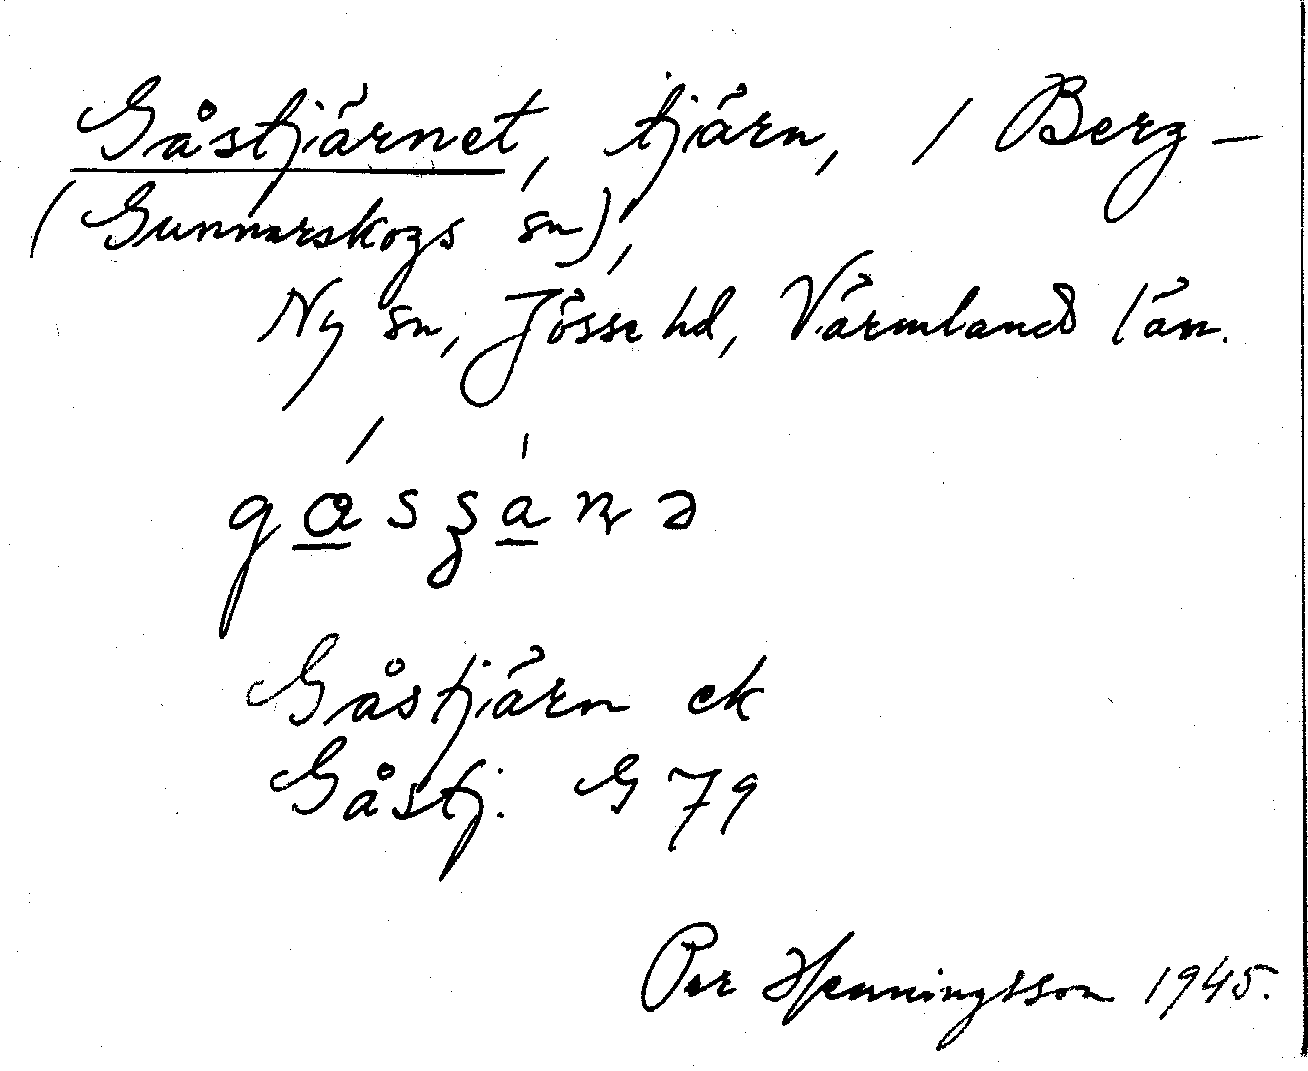 Gåstjärnet, tjärn, / Berg –
(Gunnarskogs sn),
Ny sn, Jösse hd, Värmlands län.
Gåstjärn ek
Gåstj. G 79
Per Henningsson 1945.